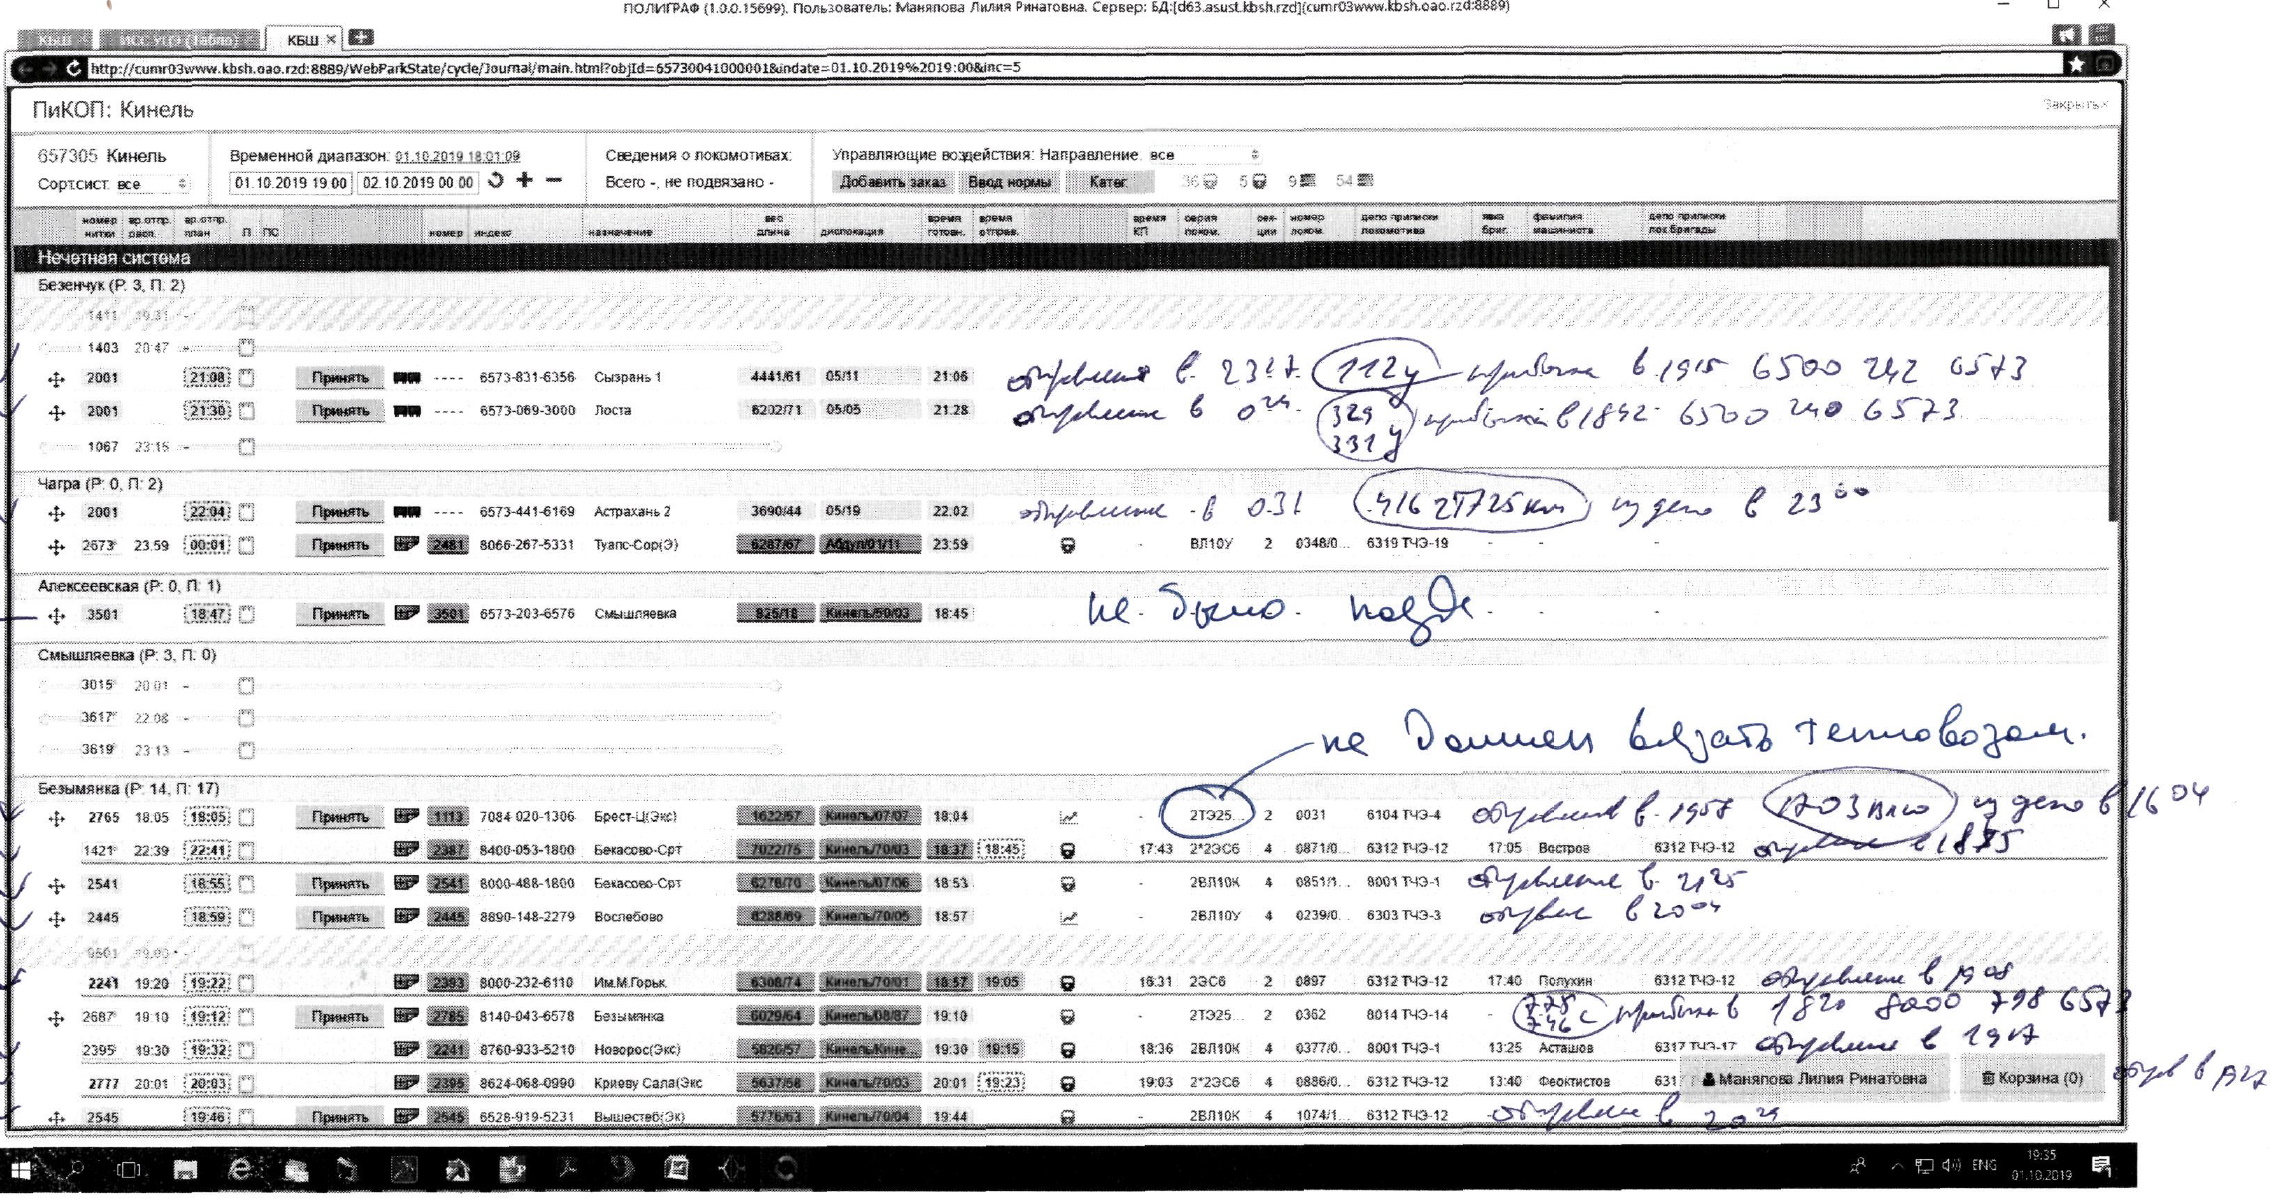 ПОЛИГРАФ (1.0.0.15699). Пользователь: Маняпова Лилия Ринатовна. Сервер: БД:[d63.asust.kbsh.rzd](cumr03www.kbsh.oao.rzd:8889)
КБШ × ИСС УЦЭ (Табло) КБШ ×
http://cumr03www.kbsh.oao.rzd:8889/WebParkState/cycle/Journal/main.html?objId=65730041000001&indate=01.10.2019%2019:00&inc=5
ПиКОП: Кинель Закрыть ×
657305 Кинель Временной диапазон: 01.10.2019 18:01:09 Сведения о локомотивах: Управляющие воздействия: Направление: все
Сорт.сист. все 01.10.2019 19:00 02.10.2019 00:00 Всего -, не подвязано - Добавить заказ Ввод нормы Катег. 36 5 9 54
номер нитки вр.отпр. расп. вр.отпр. план П ПС номер индекс назначение вес длина дислокация время готовн. время отправ. время КП серия локом. сек-ции номер локом. депо приписки локомотива явка бриг. фамилия машиниста депо приписки лок.бригады
Нечетная система
Безенчук (Р: 3, П: 2)
1411 19:31 -
1403 20:47 -
2001 21:08 Принять ---- 6573-831-6356 Сызрань 1 4441/61 05/11 21:06 отправление в 23 17 112у прибытие в 19 15 6500 242 6573
2001 21:30 Принять ---- 6573-069-3000 Лоста 6202/71 05/05 21:28 отправление в 0 24 329 331у 6500 240 6573
1067 23:15 -
Чагра (Р: 0, П: 2)
2001 22:04 Принять ---- 6573-441-6169 Астрахань 2 3690/44 05/19 22:02 отправление в 0 31 416 2Т725км из депо в 23 00
2673 23:59 00:01 Принять 2481 8066-267-5331 Туапс-Сор(Э) 6287/67 Абдул/01/11 23:59 - ВЛ10У 2 0348/0... 6319 ТЧЭ-19 - - -
Алексеевская (Р: 0, П: 1)
3501 18:47 Принять 3501 6573-203-6576 Смышляевка 825/18 Кинель/50/03 18:45 не было поезда
Смышляевка (Р: 3, П: 0)
3015 20:01 -
3617 22:08 -
3619 23:13 -
не должен вязать тепловозом.
Безымянка (Р: 14, П: 17)
2765 18:05 18:05 Принять 1113 7084-020-1306 Брест-Ц(Экс) 1622/57 Кинель/07/07 18:04 - 2ТЭ25... 2 0031 6104 ТЧЭ-4 отправление в 19 57 1703 из депо в 16 04
1421 22:39 22:41 2387 8400-053-1800 Бекасово-Срт 7022/75 Кинель/70/03 18:37 18:45 17:43 2*2ЭС6 4 0871/0... 6312 ТЧЭ-12 17:05 Востров 6312 ТЧЭ-12 отправление
2541 18:55 Принять 2541 8000-488-1800 Бекасово-Срт 6276/70 Кинель/07/06 18:53 2ВЛ10К 4 0851/1... 8001 ТЧЭ-1 отправление в 21 25
2445 18:59 Принять 2445 8890-148-2279 Воспебово 6288/69 Кинель/70/05 18:57 - 2ВЛ10У 4 0239/0... 6303 ТЧЭ-3 в 20 04
9501 19:03 -
2241 19:20 19:22 2393 8000-232-6110 Им.М.Горьк. 6308/74 Кинель/70/01 18:57 19:05 16:31 2ЭС6 2 0897 6312 ТЧЭ-12 17:40 Полухин 6312 ТЧЭ-12 отправление в 19 08
2687 19:10 19:12 Принять 2785 8140-043-6578 Безымянка 6029/64 Кинель/08/87 19:10 - 2ТЭ25... 2 0362 8014 ТЧЭ-14 - 746 прибытие в 18 20 8000 798 6573
2395 19:30 19:32 2241 8760-933-5210 Новорос(Экс) 5820/57 Кинель/Кине... 19:30 19:15 18:36 2ВЛ10К 4 0377/0... 8001 ТЧЭ-1 13:25 Асташов 6317 ТЧЭ-17 отправление в 19 17
2777 20:01 20:03 2395 8624-068-0990 Криеву Сала(Экс 5637/58 Кинель/70/03 20:01 19:23 19:03 2*2ЭС6 4 0886/0... 6312 ТЧЭ-12 13:40 Феоктистов 631 Маняпова Лилия Ринатовна Корзина (0) в 19 27
2545 19:46 Принять 2545 6528-919-5231 Вышестеб(Эк) 5776/63 Кинель/70/04 19:44 - 2ВЛ10К 4 1074/1... 6312 ТЧЭ-12 отправление в 20 29
ENG 19:35
01.10.2019